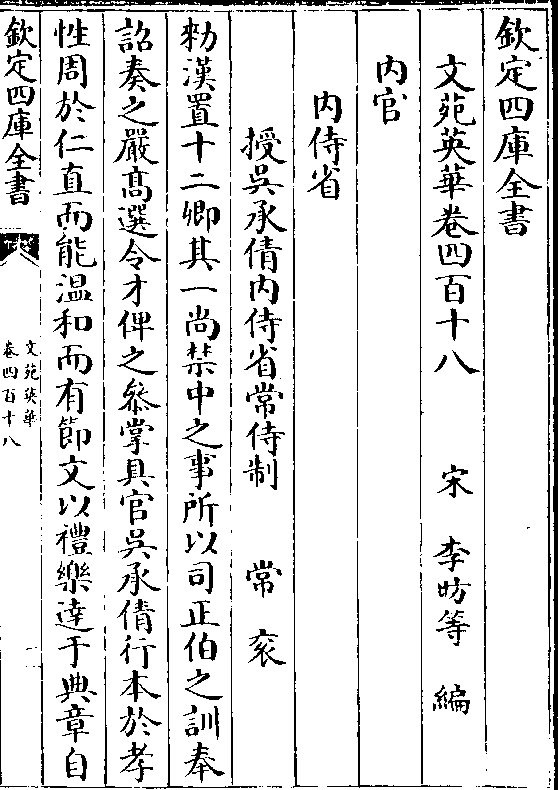 欽定四庫全書
文苑英華卷四百十八　宋　李昉等　編
内官
内侍省
授吳承倩内侍省常侍制　常衮
勅漢置十二卿其一尚禁中之事所以司正伯之訓奉
詔奏之嚴髙選令才俾之叅掌具官吳承倩行本於孝
性周於仁直而能温和而有節文以禮樂達于典章自
欽定四庫全書
文苑英華
卷四百十八
一